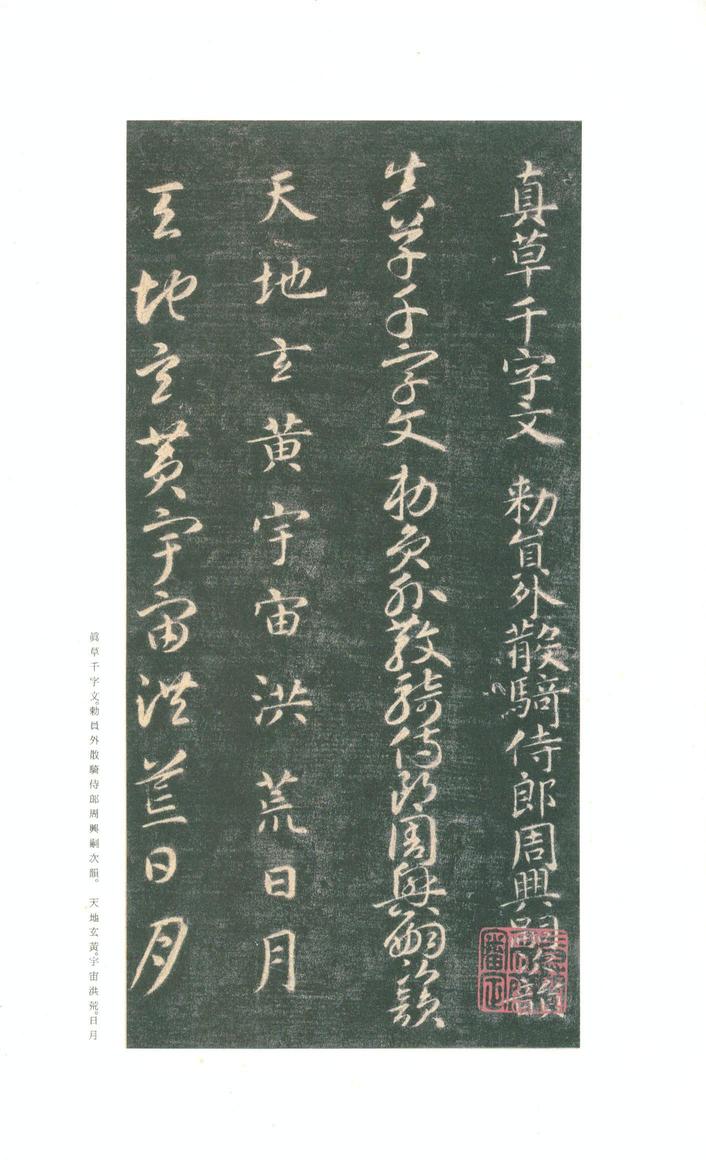 真草千字文 勅員外散騎侍郎周興嗣次韻
真草千字文 勅員外散騎侍郎周興嗣次韻
天地玄黄宇宙洪荒日月
天地玄黄宇宙洪荒日月
眞草千字文。勅員外散騎侍郎周興嗣次韻。 天地玄黄。宇宙洪荒。日月